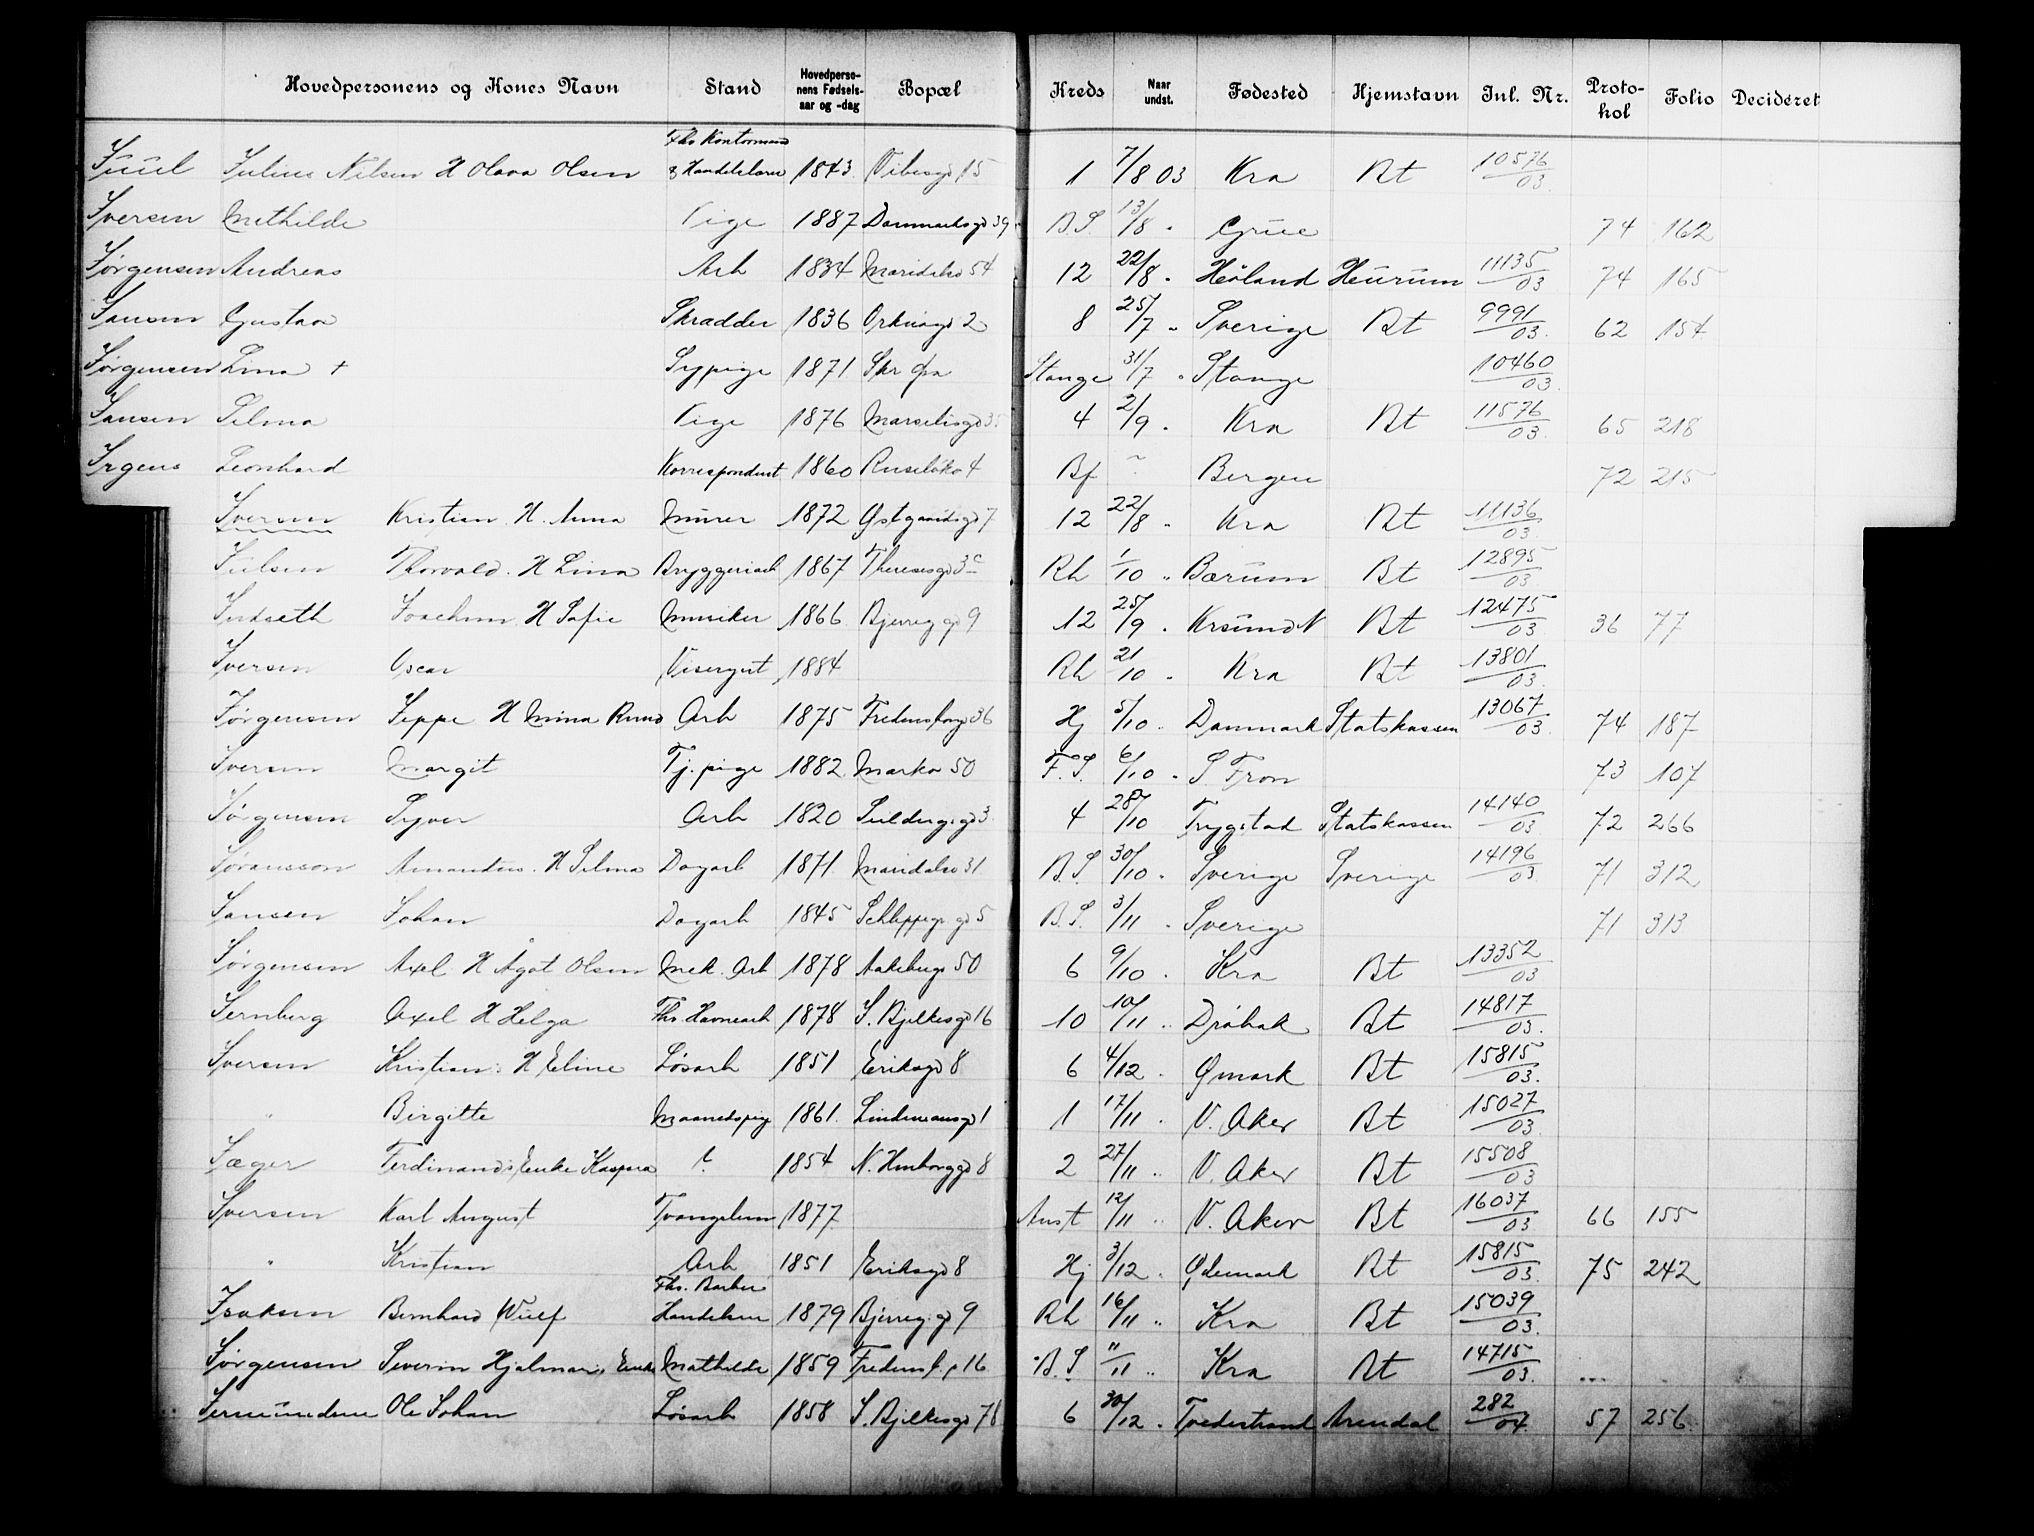 Hovedpersonens og Kones Navn Stand Hovedpersonens Fødselsaar og -dag Bopæl Kreds Naar undst. Fødested Hjemstavn Jnl. Nr. Protokol Folio Decideret
Juul Julius Nilsen H Olava Olsen Fhv Kontormand & Handelslærer 1843 Vibesgd 15 1 7/8 03 Kra Bt 10576/03
Iversen Mathilde Pige 1887 Danmarksgd 39 B.S. 13/8 " Grue 74 162
Jørgensen Andreas Arb 1834 Maridalsv 54 12 22/8 " Høland Heurum 11135/03 74 165
Jansen Gustav Skrædder 1836 Orknøgd 2 8 25/7 " Sverige Bt 9991/03 62 154
Jørgensen Lina + Sypige 1871 Stange 31/7 " Stange 10460/03
Jansen Selma Pige 1876 Marselisgd 35 4 2/9 " Kra Bt 11576/03 65 218
Irgens Leonhard Korrespondent 1860 Ruseløkv 4 Bf " Bergen 72 215
Iversen Kristian H. Anna Murer 1872 Østgaardsgd 7 12 22/8 " Kra Bt 11136/03
Juilsen Thorvald. H Lina Bryggeriarb 1867 Theresesgd 3c Rh 1/10 " Bærum Bt 12895/03
Indseth Joachim H Sofie Musiker 1866 Bjerreg gd 9 12 25/9 " KrsundN Bt 12475/03 36 77
Iversen Oscar Visergut 1884 Rh 21/10 " Kra Bt 13801/03
Jørgensen Jeppe H Mina Arb 1875 Fredensborgv 36 Hj 5/10 " Danmark Statskassen 13067/03 74 187
Iversen Margit Tj.pige 1882 Markv 50 F.S. 6/10 " S Fron 73 107
Jørgensen Syver Arb 1820 3 4 28/10 Trygstad Statskassen 14140/03 72 266
Jøransson Amandus. H Selma Dagarb 1871 Maridalsv 31 B.S 30/10 " Sverige Sverige 14196/03 71 312
Jansen Johan Dagarb 1845 Schleppegr. gd 5 B.S. 3/11 " Sverige 71 313
Jørgensen Axel H Ågot Olsen Mek. Arb 1878 Aakebergv 50 6 9/10 " Kra Bt 13352/03
Jernberg Axel H Helga Fhv. Havnearb 1878 J. Bjelkesgd 16 10 10/11 " Drøbak Bt 14817/03
Iversen Kristian. H Eline Løsarb 1851 Eriksgd 8 6 4/12 " Ømark Bt 15815/03
" Birgitte Maanedspige 1861 Lindemansgd 1 1 17/11 " V. Aker Bt 15027/03
Jæger Ferdinands Enke Kaspara ? 1854 8 2 27/11 " V. Aker Bt 15508/03
Iversen Karl August Tvangslem 1877 Anst 12/11 " V. Aker Bt 16037/03 66 155
" Kristian Arb 1851 Eriksgd 8 Hj 3/12 " Ødemark Bt 15815/03 75 242
Isaksen Bernhard Wulf Fhv. Barber Handelsm 1879 Bjerreg. gd 9 Rh 16/11 " Kra Bt 15039/03
Jørgensen Severin Hjalmars Enke Mathilde 1859 16 B.S 11/11 " Kra Bt 14715/03
Ole Johan Løsarb 1858 J. Bjelkesgd 78 6 30/12 " Tvedestrand Arendal 282/04 57 256